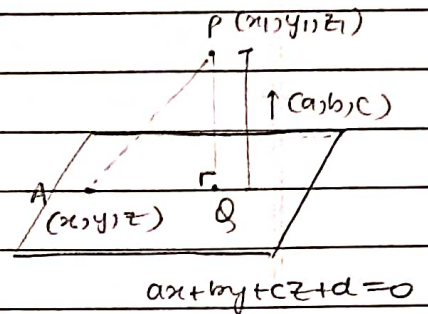 P (x1, y1, z1)
↑ (a, b, c)
A
(x, y, z)
Q
ax+by+cz+d=0